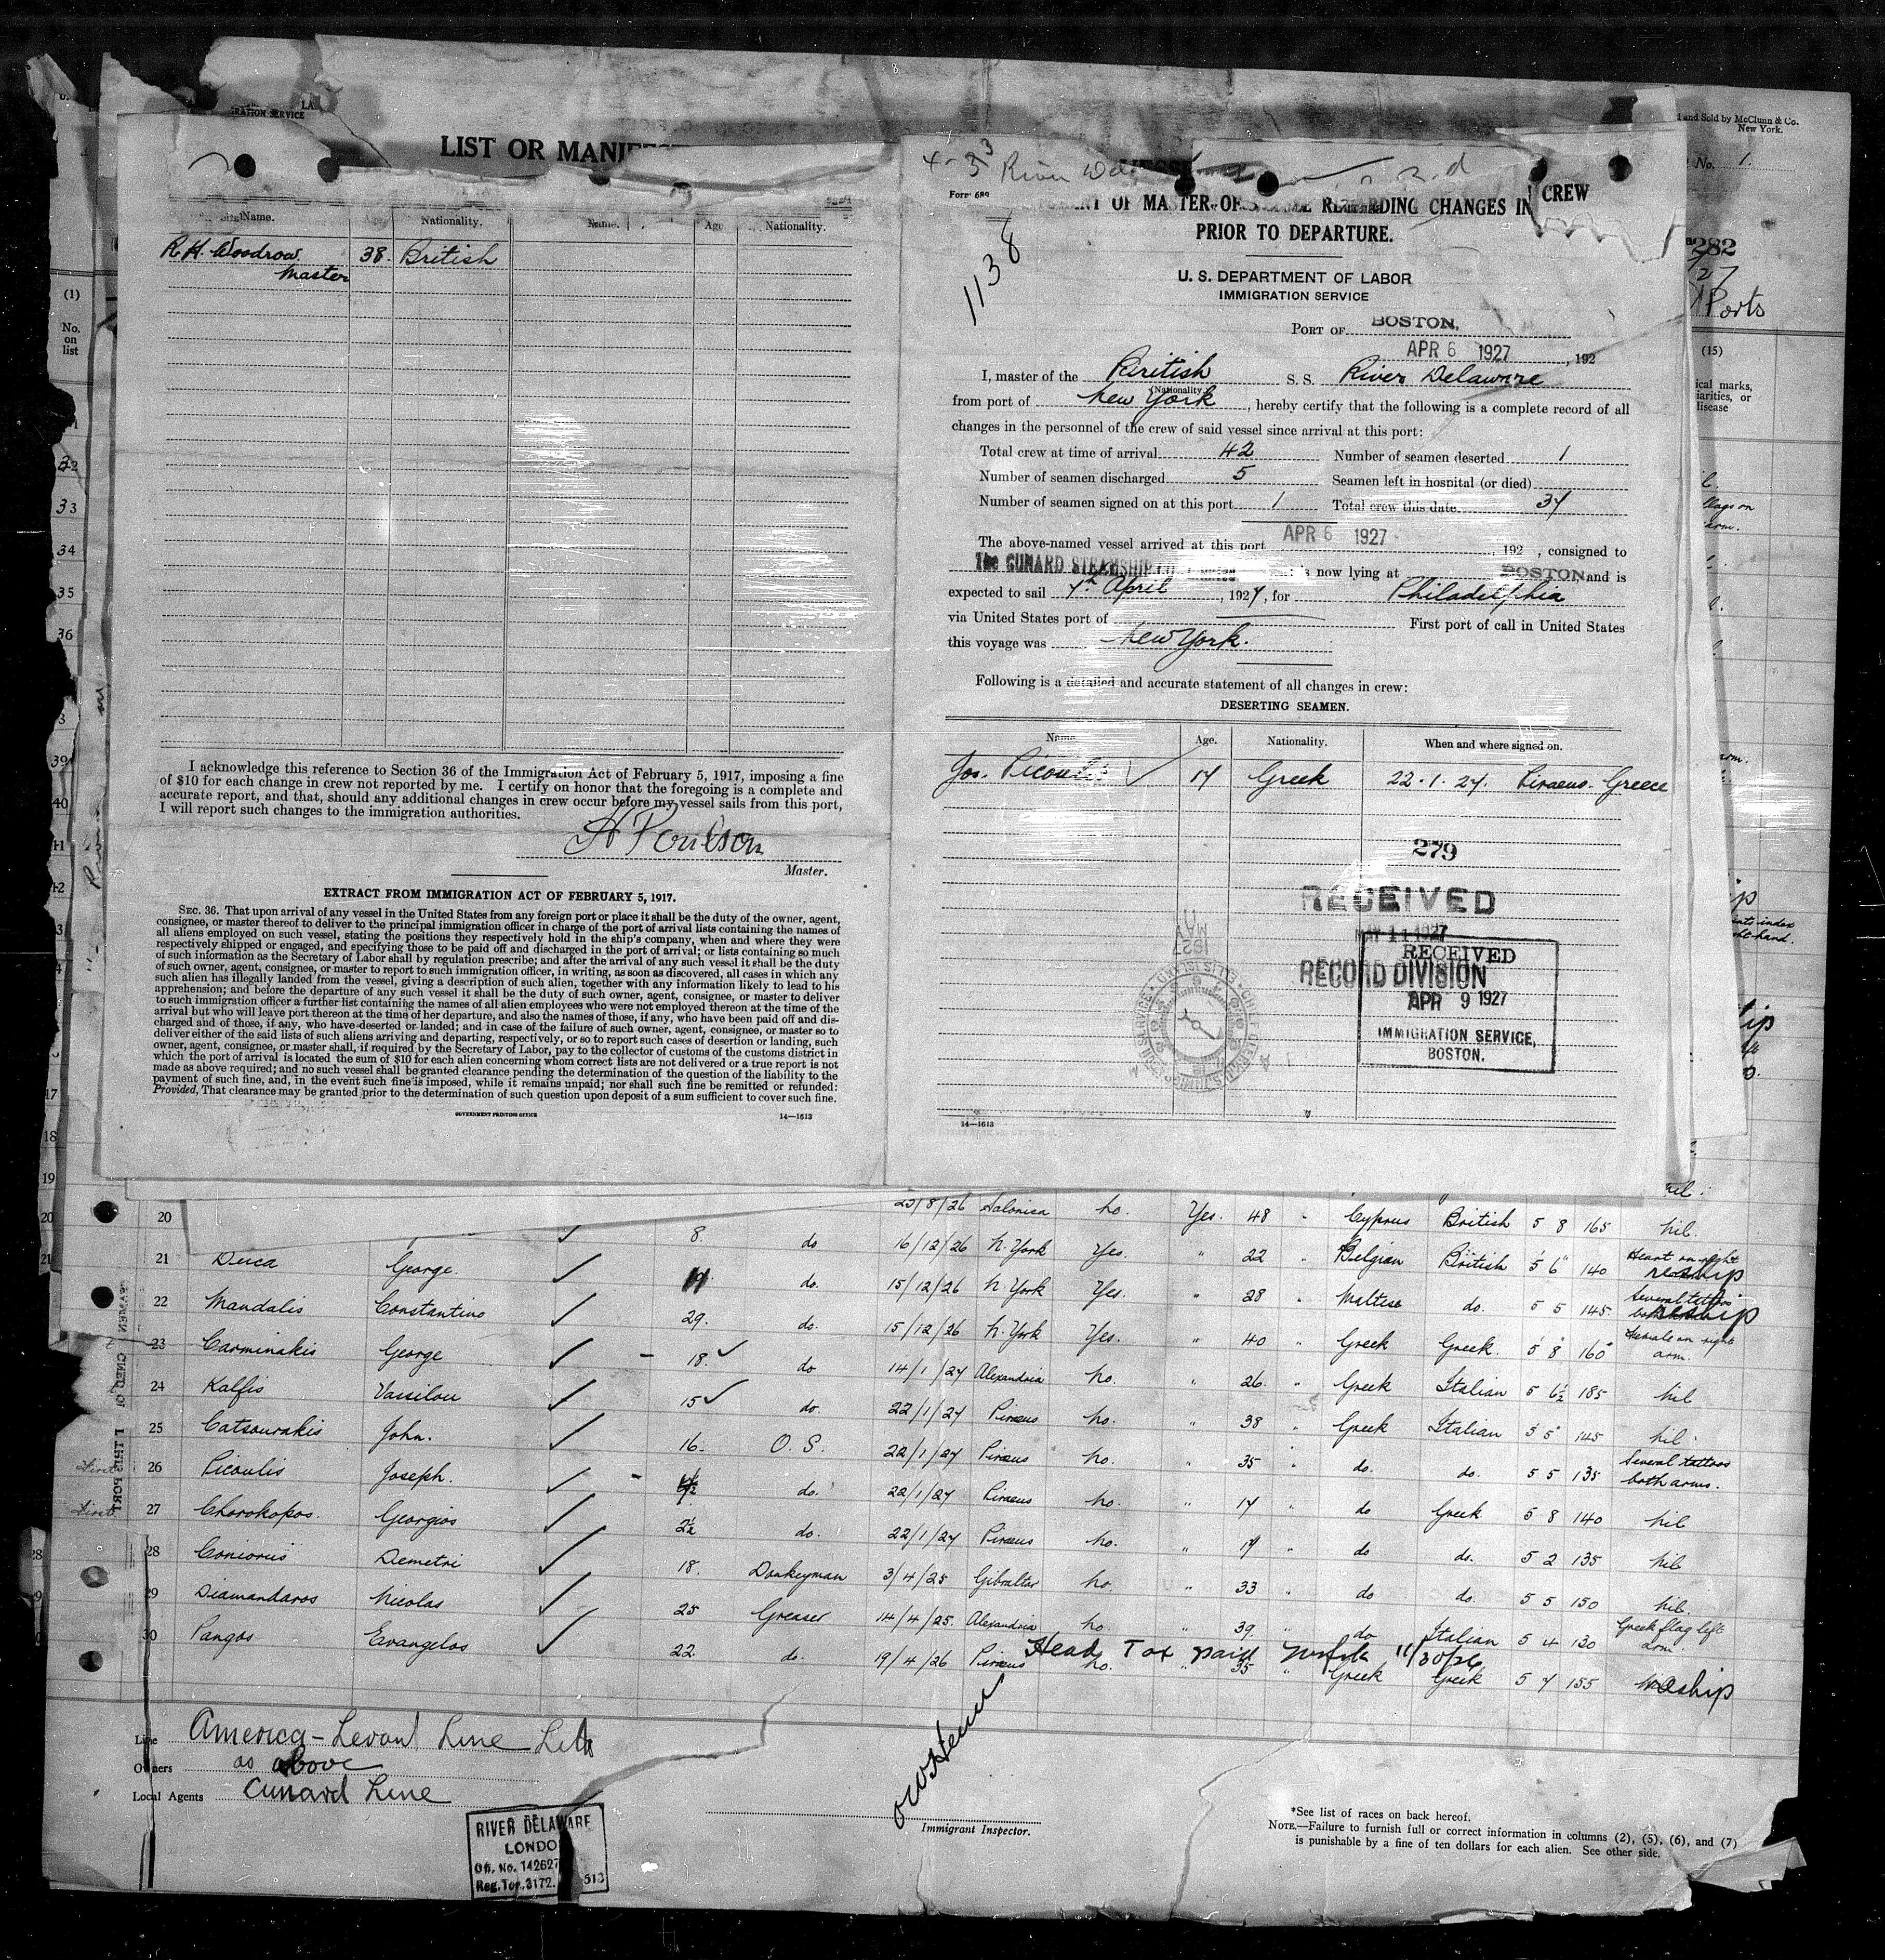 LIST OR MANIFEST
Name. Age Nationality. Name. Age Nationality.
R. H. Woodrow. 38. British
Master
I acknowledge this reference to Section 36 of the Immigration Act of February 5, 1917, imposing a fine
of $10 for each change in crew not reported by me. I certify on honor that the foregoing is a complete and
accurate report, and that, should any additional changes in crew occur before my vessel sails from this port,
I will report such changes to the immigration authorities.
H Poulson
Master.
EXTRACT FROM IMMIGRATION ACT OF FEBRUARY 5, 1917.
SEC. 36. That upon arrival of any vessel in the United States from any foreign port or place it shall be the duty of the owner, agent,
consignee, or master thereof to deliver to the principal immigration officer in charge of the port of arrival lists containing the names of
all aliens employed on such vessel, stating the positions they respectively hold in the ship's company, when and where they were
respectively shipped or engaged, and specifying those to be paid off and discharged in the port of arrival; or lists containing so much
of such information as the Secretary of Labor shall by regulation prescribe; and after the arrival of any such vessel it shall be the duty
of such owner, agent, consignee, or master to report to such immigration officer, in writing, as soon as discovered, all cases in which any
such alien has illegally landed from the vessel, giving a description of such alien, together with any information likely to lead to his
apprehension; and before the departure of any such vessel it shall be the duty of such owner, agent, consignee, or master to deliver
to such immigration officer a further list containing the names of all alien employees who were not employed thereon at the time of the
arrival but who will leave port thereon at the time of her departure, and also the names of those, if any, who have been paid off and dis-
charged and of those, if any, who have deserted or landed; and in case of the failure of such owner, agent, consignee, or master so to
deliver either of the said lists of such aliens arriving and departing, respectively, or so to report such cases of desertion or landing, such
owner, agent, consignee, or master shall, if required by the Secretary of Labor, pay to the collector of customs of the customs district in
which the port of arrival is located the sum of $10 for each alien concerning whom correct lists are not delivered or a true report is not
made as above required; and no such vessel shall be granted clearance pending the determination of the question of the liability to the
payment of such fine, and, in the event such fine is imposed, while it remains unpaid; nor shall such fine be remitted or refunded:
Provided, That clearance may be granted prior to the determination of such question upon deposit of a sum sufficient to cover such fine.
GOVERNMENT PRINTING OFFICE 14—1613
4-3 River Del
Form 689
1138
OF MASTER OF REGARDING CHANGES IN CREW
PRIOR TO DEPARTURE.
U. S. DEPARTMENT OF LABOR
IMMIGRATION SERVICE
PORT OF BOSTON,
APR 6 1927, 192
I, master of the British S. S. River Delaware
(Nationality)
from port of New York, hereby certify that the following is a complete record of all
changes in the personnel of the crew of said vessel since arrival at this port:
Total crew at time of arrival 42 Number of seamen deserted 1
Number of seamen discharged 5 Seamen left in hospital (or died)
Number of seamen signed on at this port 1 Total crew this date 37
The above-named vessel arrived at this port APR 6 1927, 192 , consigned to
The CUNARD STEAMSHIP is now lying at BOSTON and is
expected to sail 7th April, 1927, for Philadelphia
via United States port of First port of call in United States
this voyage was New York.
Following is a detailed and accurate statement of all changes in crew:
DESERTING SEAMEN.
Name. Age. Nationality. When and where signed on.
Jos. Picoulis 17 Greek 22.1.27. Piraeus. Greece
279
RECEIVED
MAY 11 1927
RECORD DIVISION
RECEIVED
APR 9 1927
IMMIGRATION SERVICE,
BOSTON.
14—1613
and Sold by McClunn & Co.
New York.
No. 1.
282
27
Ports
(15)
ical marks,
iarities, or
disease
(1)
No.
on
list
20 23/8/26 Salonica no. Yes. 48 Cyprus British 5 8 165 nil.
21 Duca George. 8. do 16/12/26 N. York Yes. " 22 " Belgian British 5 6 140 Heart on right reship
22 Mandalis Constantino do. 15/12/26 N. York Yes. " 28 " Maltese do. 5 5 145 Several tattoos reship
23 Carminakis George 29. do. 15/12/26 N. York Yes. " 40 " Greek Greek. 5 8 160 Female on right arm.
24 Kalfis Vassilou 18. do 14/1/27 Alexandria no. " 26. " Greek Italian 5 6½ 185 nil
25 Catsourakis John. 15 do. 22/1/27 Piraeus no. " 38 " Greek Italian 5 5 145 nil.
26 Picoulis Joseph. 16. O. S. 22/1/27 Piraeus no. " 35 " do. do. 5 5 135 Several tattoos both arms.
27 Chorokopos. Georgios do. 22/1/27 Piraeus no. " 17 do Greek 5 8 140 nil
28 Coniorus Demetri 2½ do. 22/1/27 Piraeus no. " 19 " do do. 5 2 135 nil
29 Diamandaros Nicolas 18. Donkeyman 3/4/25 Gibraltar no. " 33 do do. 5 5 150 nil.
30 Pangos Evangelos 25 Greaser 14/4/25. Alexandria no. " 39. " do Italian 5 4 130 Greek flag left arm.
22. do. 19/4/26 Piraeus no. " 35 " Greek Greek 5 7 155 reship
Head Tax paid Norfolk 11/30/26
Line America-Levant Line Ltd
Owners as above
Local Agents Cunard Line
RIVER DELAWARE
LONDON
Off. No. 142627
Reg. Ton. 3172. 513
Immigrant Inspector.
*See list of races on back hereof.
NOTE.—Failure to furnish full or correct information in columns (2), (5), (6), and (7)
is punishable by a fine of ten dollars for each alien. See other side.